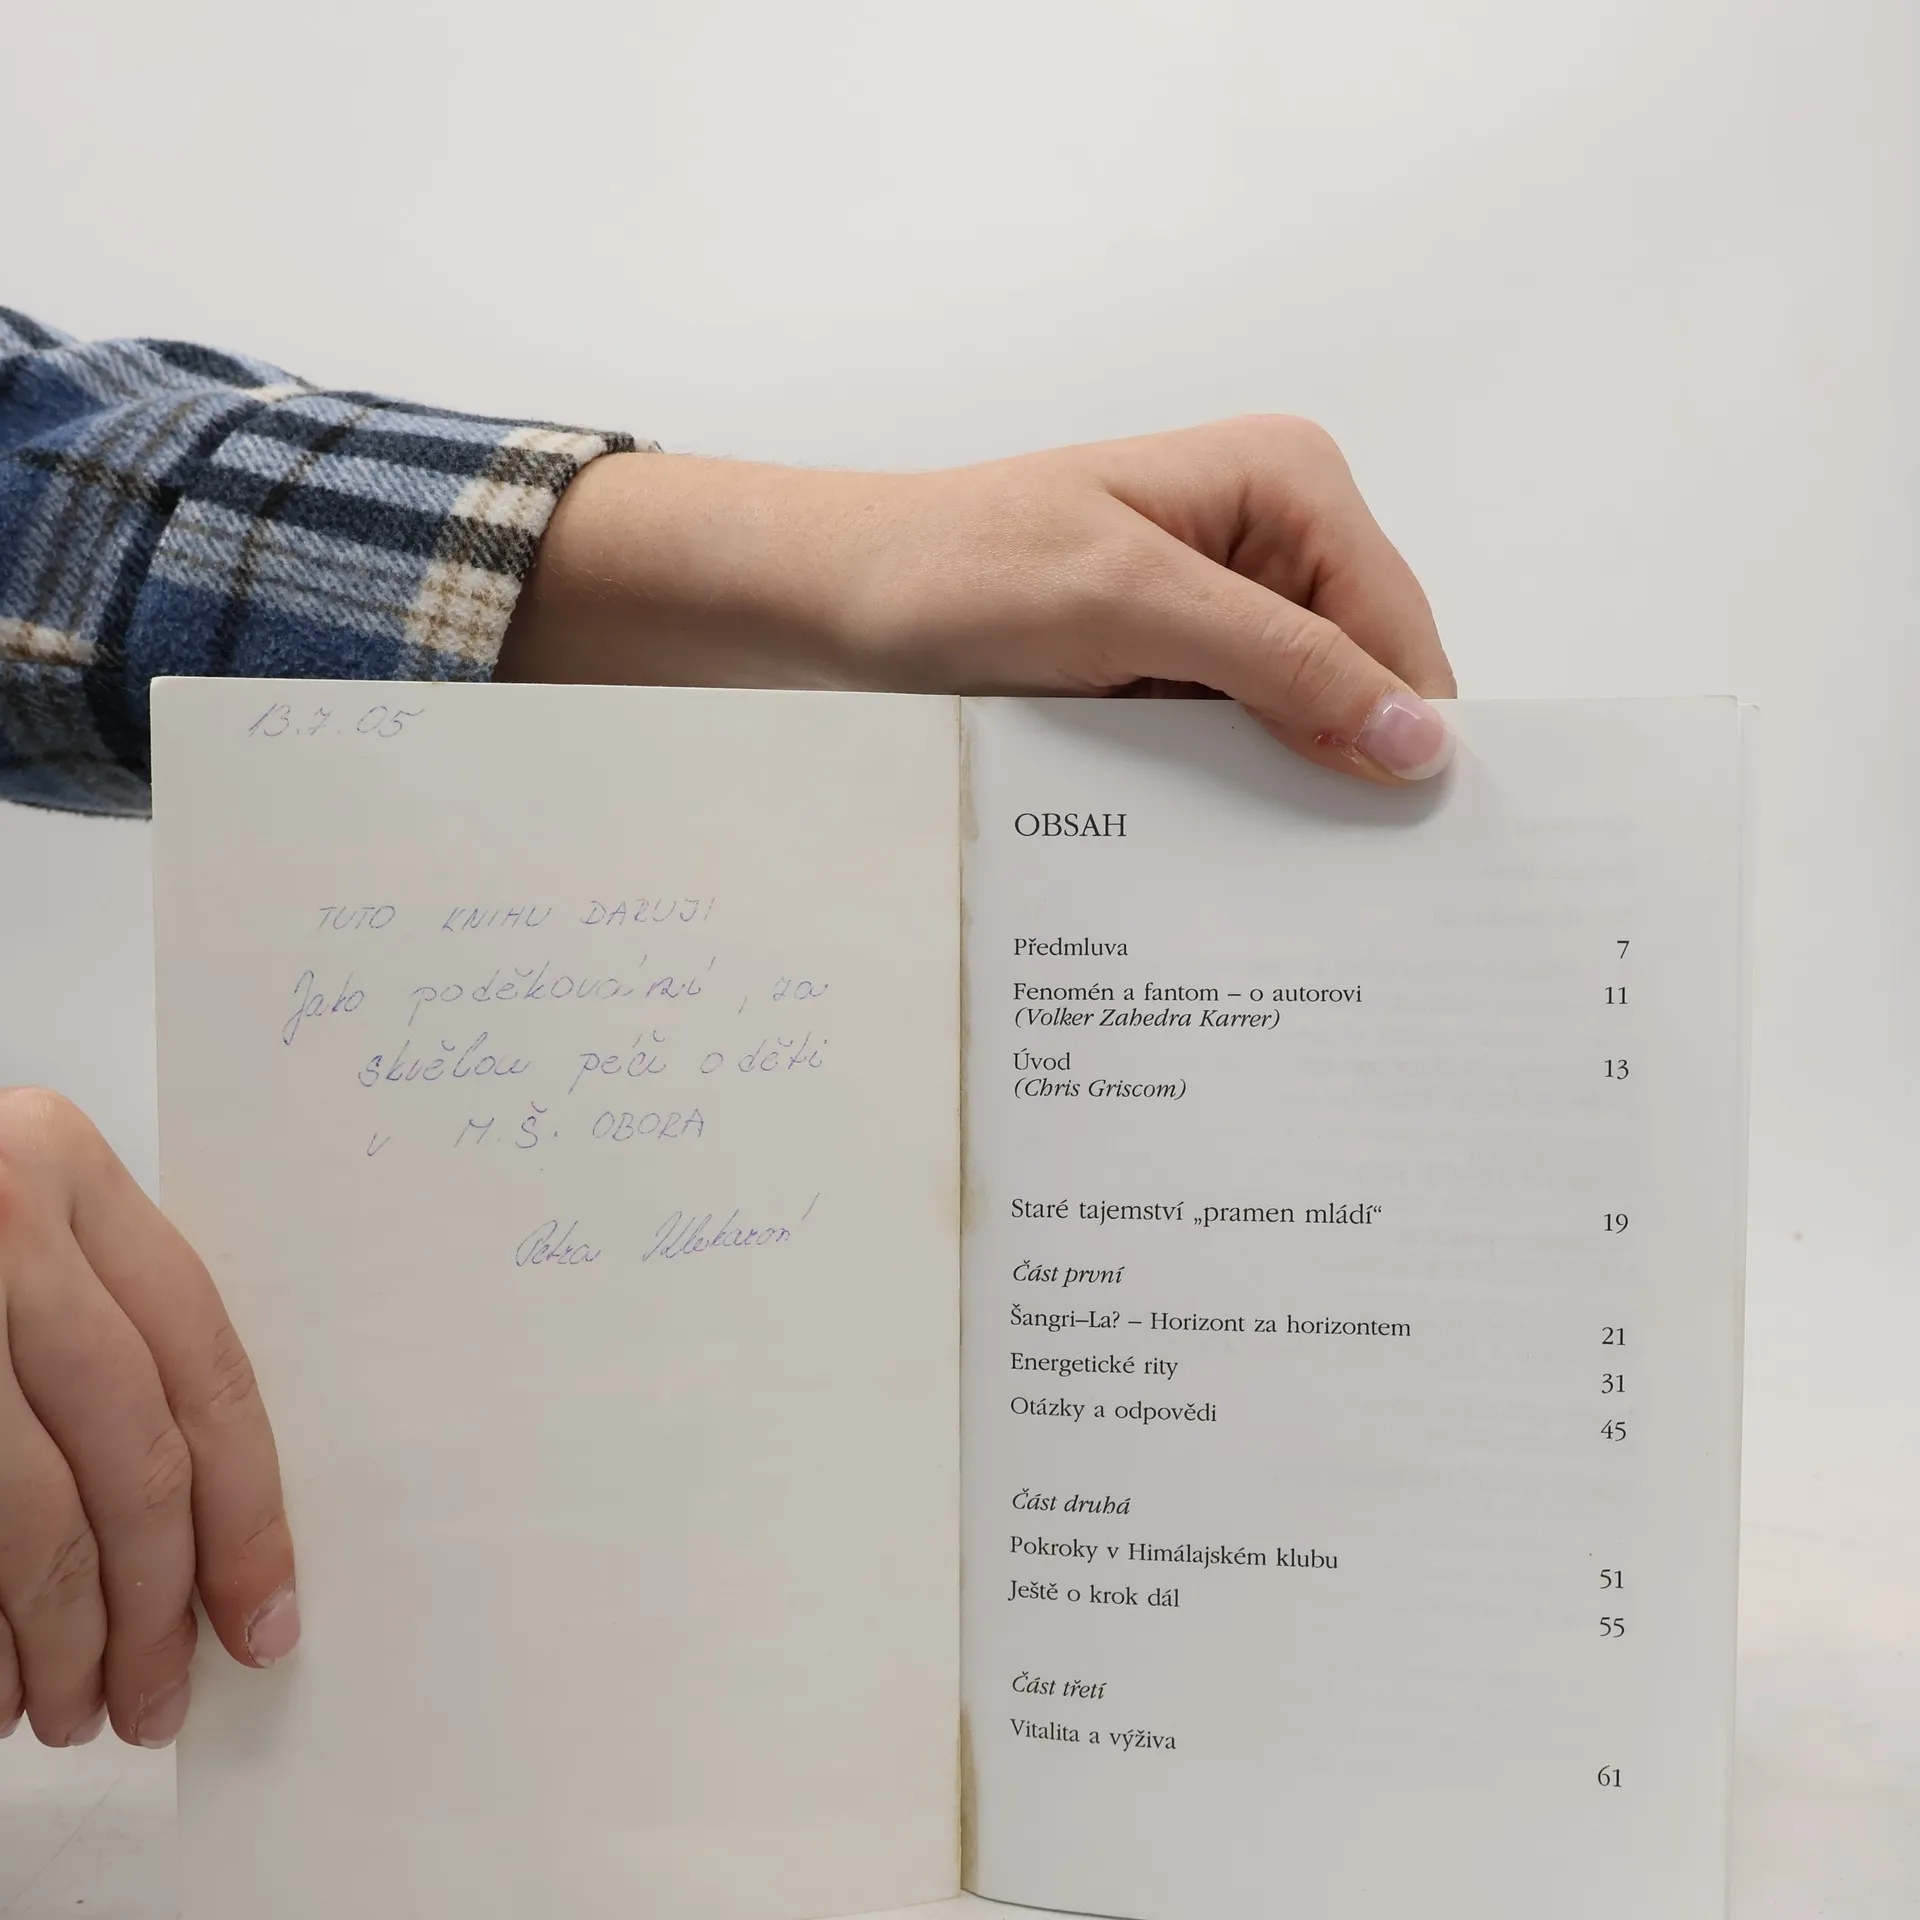 13.7.05
TUTO KNIHU DARUJI
Jako poděkování, za
skvělou péči o děti
v M.Š. OBORA
Petra
OBSAH
Předmluva 7
Fenomén a fantom – o autorovi 11
(Volker Zahedra Karrer)
Úvod 13
(Chris Griscom)
Staré tajemství „pramen mládí“ 19
Část první
Šangri–La? – Horizont za horizontem 21
Energetické rity 31
Otázky a odpovědi 45
Část druhá
Pokroky v Himálajském klubu 51
Ještě o krok dál 55
Část třetí
Vitalita a výživa 61